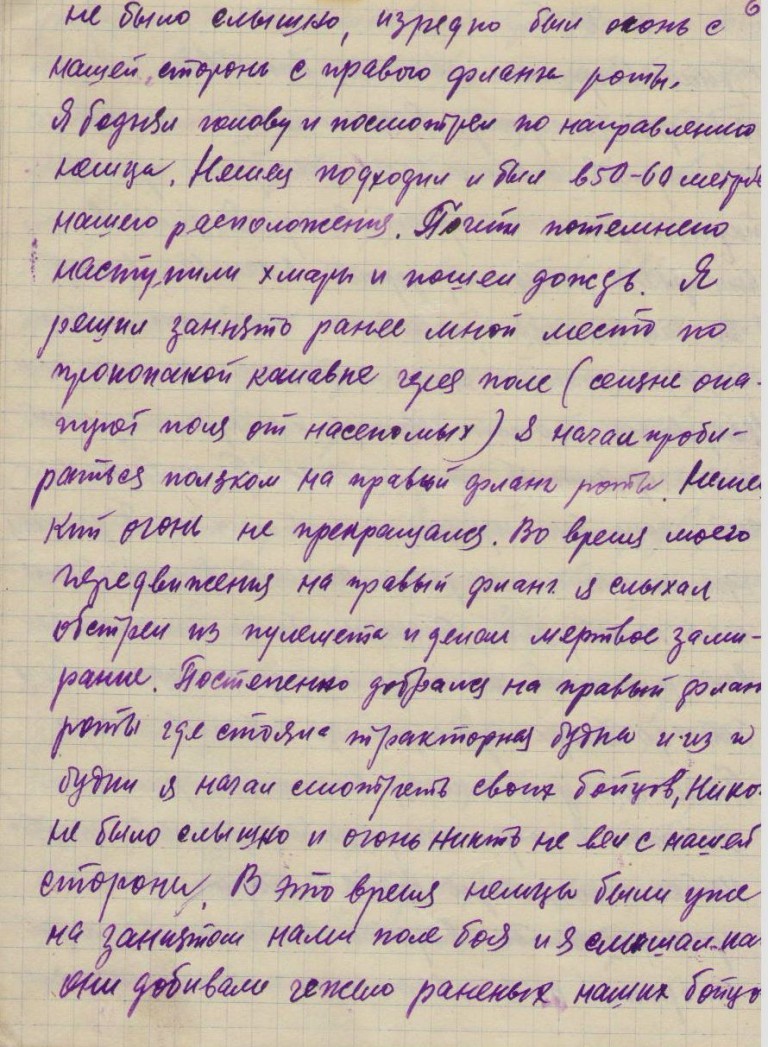 6
не было слышно, изредно был огонь с
нашей стороны с правого фланга роты.
Я поднял голову и посмотрел по направлению
немца. Немец подходил и был в 50-60 метр
нашего расположения. Почти потемнело
наступили хмары и пошел дождь. Я
решил занять ранее мной место по
прокопаной канавке через поле (
поля от насекомых) Я начал проби-
раться ползком на правый фланг роты. Неме
кий огонь не прекращался. Во время моего
передвижения на правый фланг я слыхал
обстрел из пулемета и делал мертвое зами-
рание. Постепенно добрался на правый флан
роты где стояла тракторная будка и из
будки я начал смотреть своих бойцов, Нико
не было слышно и огонь никть не вел с нашей
стороны. В это время немцы были уже
на занятом нами поле боя и я слышал ка
они добивали тежело раненых наших бойцо